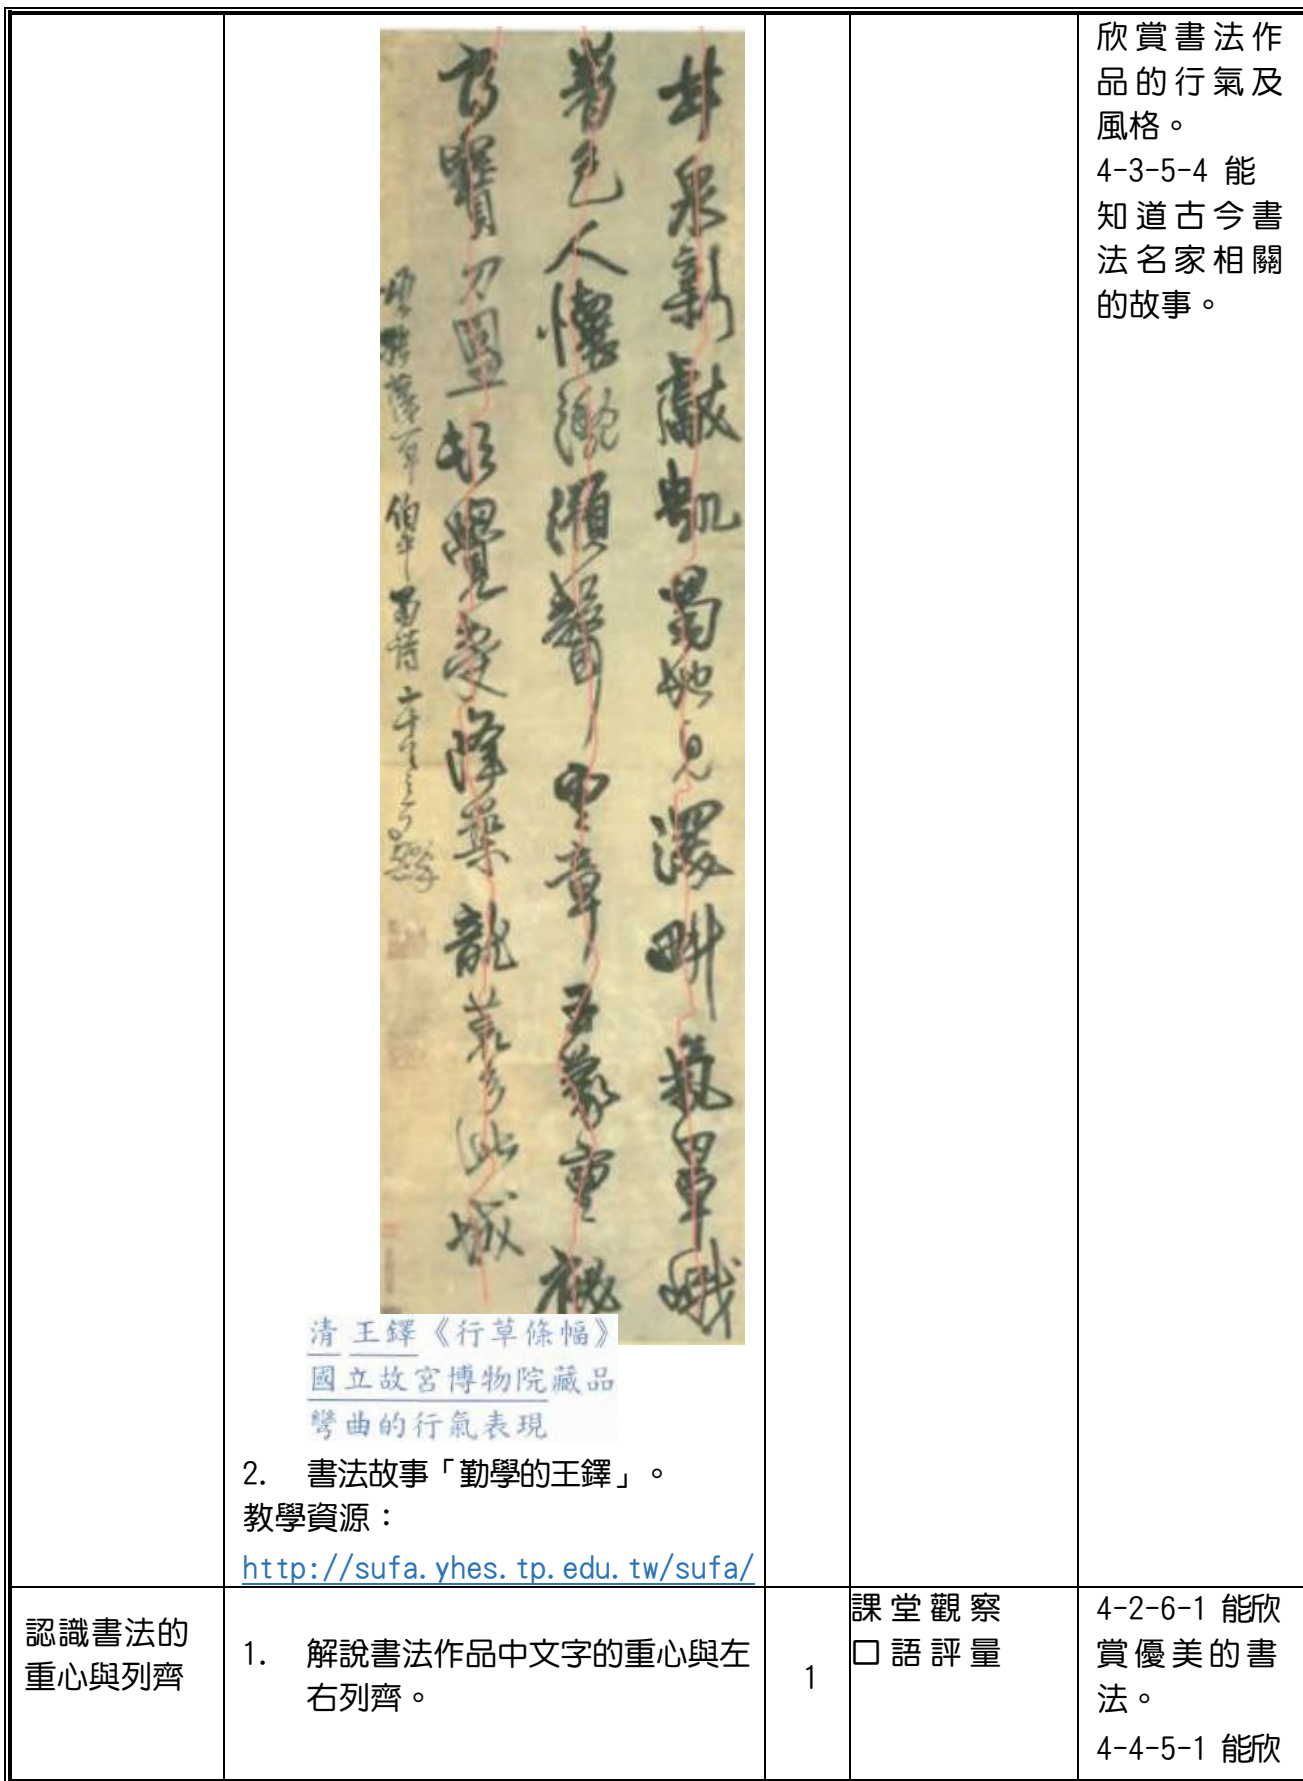 泉新獻凱蜀地見深畊氣
色人懷澦聲章重
寶刀覺受降築龍荒此城
清 王鐸《行草條幅》
國立故宮博物院藏品
彎曲的行氣表現
2. 書法故事「勤學的王鐸」。
教學資源：
http://sufa.yhes.tp.edu.tw/sufa/
欣賞書法作
品的行氣及
風格。
4-3-5-4 能
知道古今書
法名家相關
的故事。
認識書法的
重心與列齊
1. 解說書法作品中文字的重心與左
右列齊。
1
課堂觀察
口語評量
4-2-6-1 能欣
賞優美的書
法。
4-4-5-1 能欣